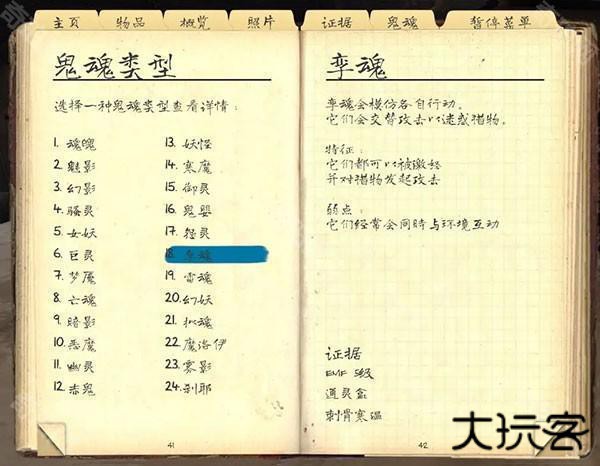 主页 物品 概览 照片 证据 鬼魂 暂停菜单
鬼魂类型
选择一种鬼魂类型查看详情：
1. 魂魄
2. 魅影
3. 幻影
4. 骚灵
5. 女妖
6. 巨灵
7. 梦魇
8. 亡魂
9. 暗影
10. 恶魔
11. 幽灵
12. 赤鬼
13. 妖怪
14. 寒魔
15. 御灵
16. 鬼婴
17. 怨灵
18. 孪魂
19. 雷魂
20. 幻妖
21. 拟魂
22. 魔洛伊
23. 雾影
24. 刹耶
41
孪魂
孪魂会模仿各自行动。
它们会交替攻击以迷惑猎物。
特征：
它们都可以被激怒
并对猎物发起攻击
弱点：
它们经常会同时与环境互动
证据
EMF 5级
通灵盒
刺骨寒温
42
大玩客